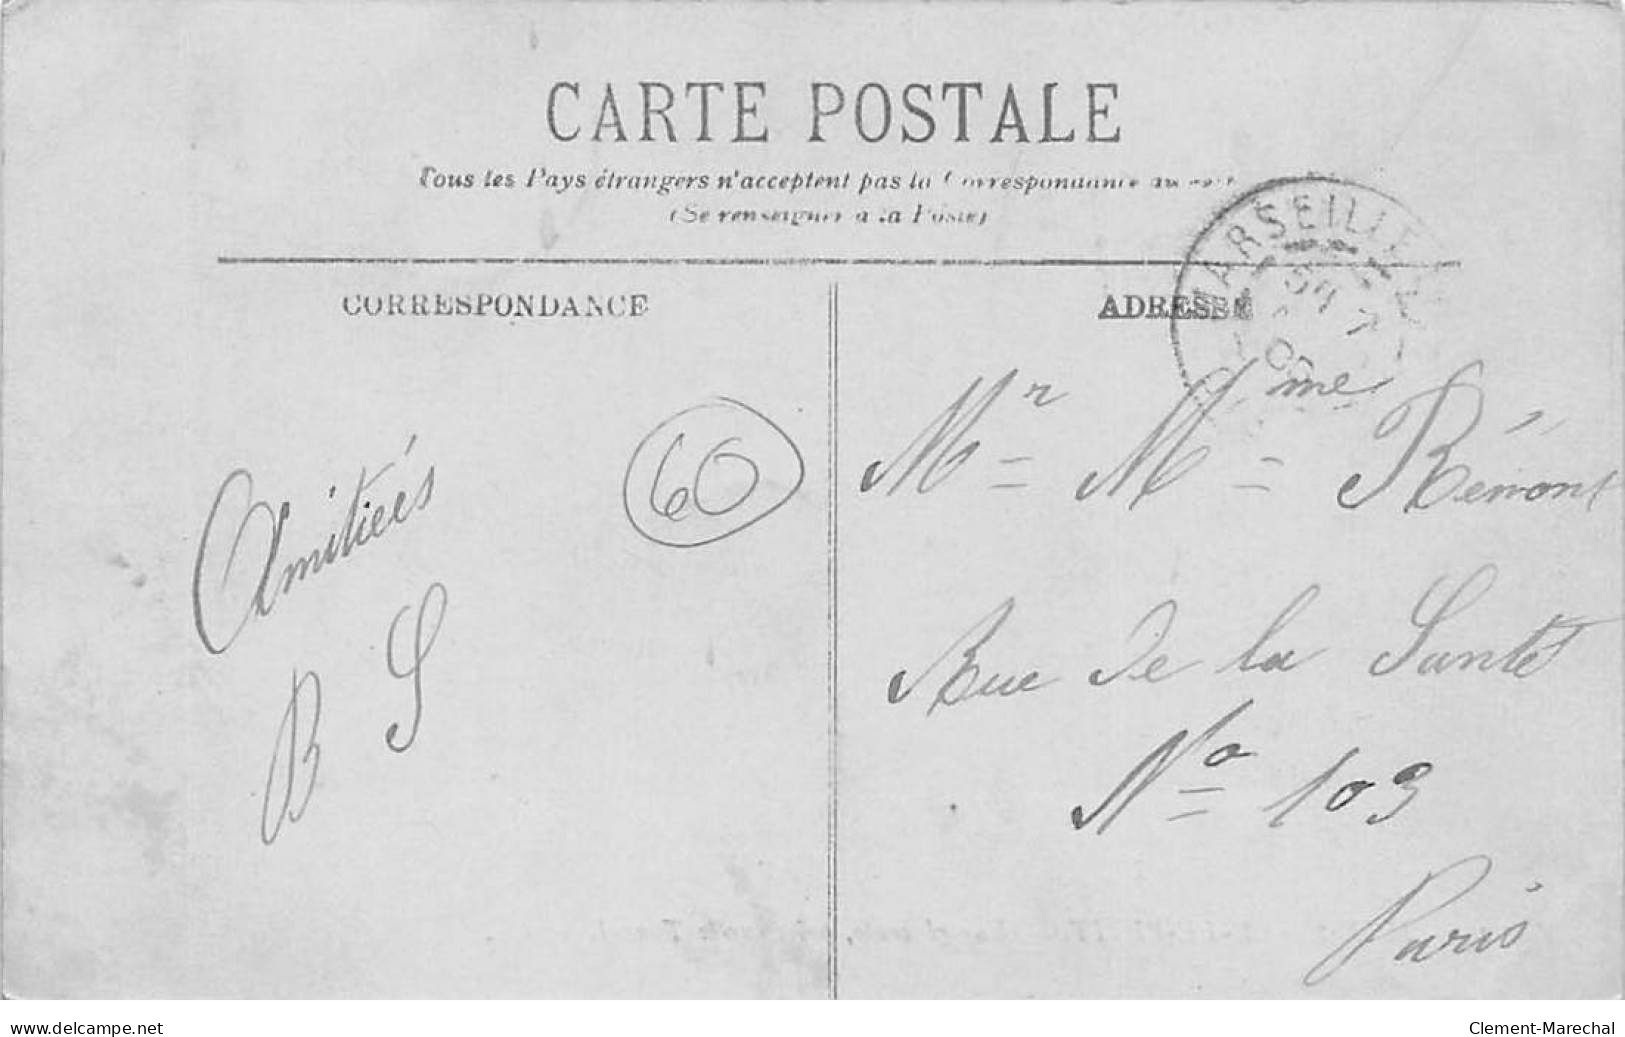 CARTE POSTALE
Tous les Pays étrangers n'acceptent pas la Correspondance au
(Se renseigner à la Poste)
MARSEILLE
CORRESPONDANCE
ADRESSE
60
Amitiés
B S
Mr Mme Rémont
Rue de la Santé
No 103
Paris
www.delcampe.net
Clement-Marechal